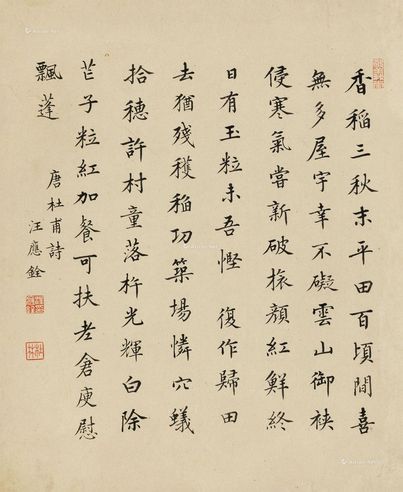 香稻三秋末平田百頃間喜
無多屋宇幸不礙雲山御裌
侵寒氣嘗新破旅顏紅鮮終
日有玉粒未吾慳 復作歸田
去猶殘穫稻功築場憐穴蟻
拾穗許村童落杵光輝白除
芒子粒紅加餐可扶老倉庾慰
飄蓬
唐杜甫詩
汪應銓